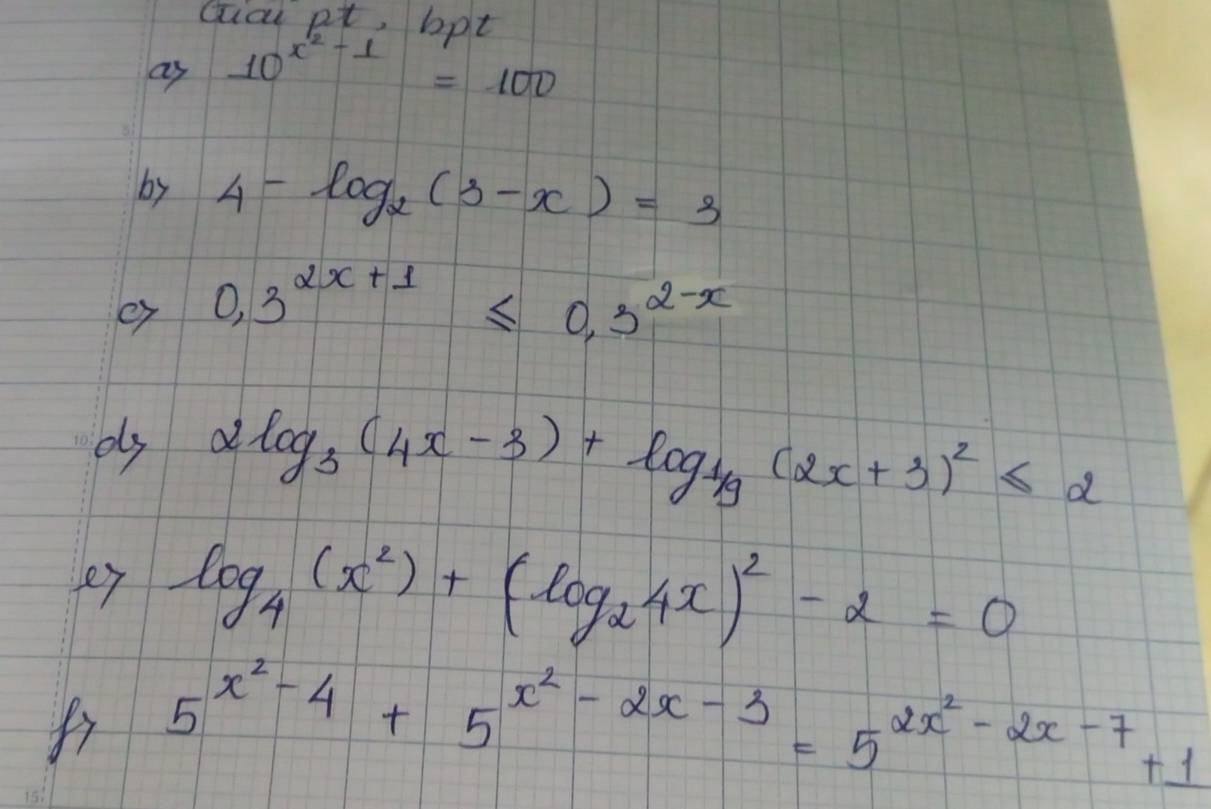 Giải pt, bpt
a) 10^{x^2 - 1} = 100
b) 4 - log_2 (3 - x) = 3
c) 0,3^{2x + 1} ≤ 0,3^{2 - x}
d) 2 log_3 (4x - 3) + log_{1/9} (2x + 3)^2 ≤ 2
e) log_4 (x^2) + (log_2 4x)^2 - 2 = 0
f) 5^{x^2 - 4} + 5^{x^2 - 2x - 3} = 5^{2x^2 - 2x - 7} + 1